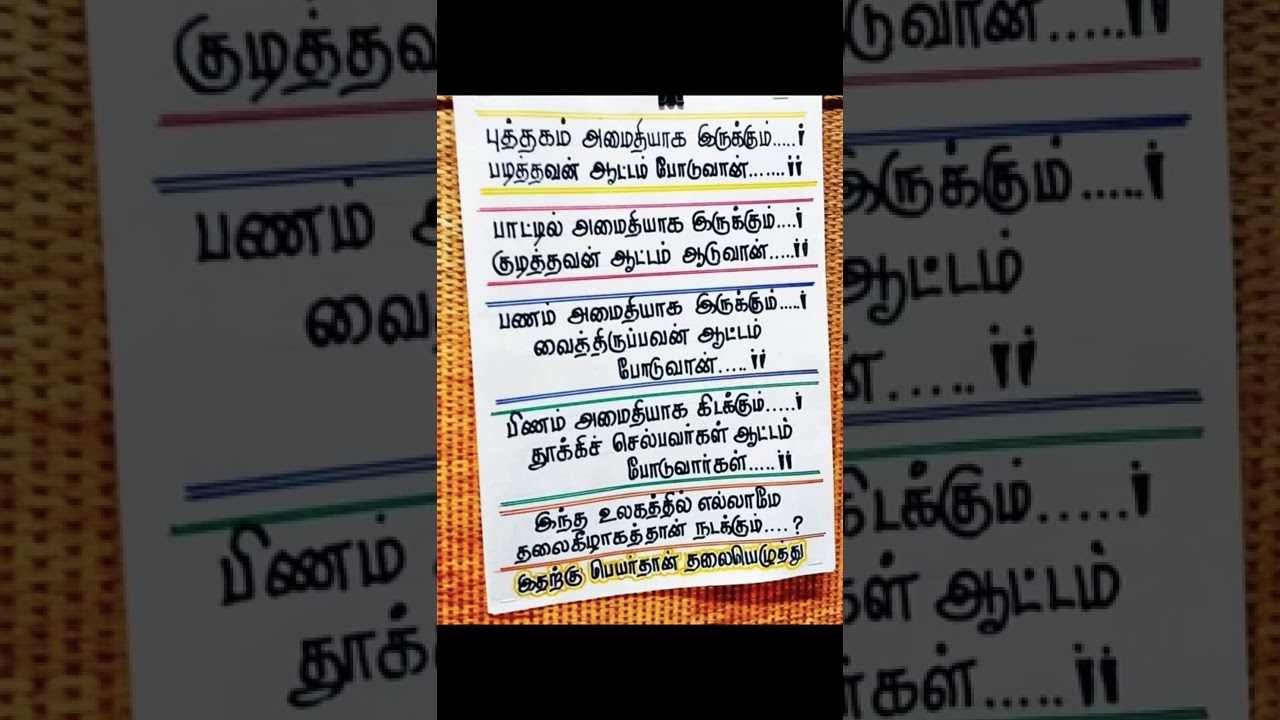 புத்தகம் அமைதியாக இருக்கும்.....!
படித்தவன் ஆட்டம் போடுவான்.......!!
பாட்டில் அமைதியாக இருக்கும்....!
குடித்தவன் ஆட்டம் ஆடுவான்.....!!
பணம் அமைதியாக இருக்கும்.....!
வைத்திருப்பவன் ஆட்டம்
போடுவான்.....!!
பிணம் அமைதியாக கிடக்கும்.....!
தூக்கிச் செல்பவர்கள் ஆட்டம்
போடுவார்கள்.....!!
இந்த உலகத்தில் எல்லாமே
தலைகீழாகத்தான் நடக்கும்....?
இதற்கு பெயர்தான் தலையெழுத்து